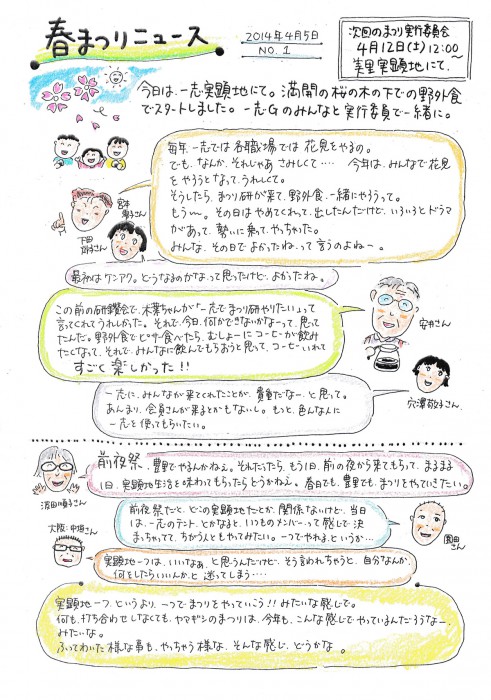 春まつりニュース
2014年4月5日
NO.1
次回のまつり実行委員会
4月12日(土)12:00~
美里実顕地にて.
今日は、一志実顕地にて。満開の桜の木の下での野外食
でスタートしました。一志Gのみんなと実行委員で一緒に。
毎年、一志では各職場では花見をやるの。
でも、なんか、それじゃあさみしくて‥‥ 今年は、みんなで花見
をやろうとなって、うれしくて。
そうしたら、まつり研が来て、野外食、一緒にやろうって。
もう〜。その日はやめてくれって、出したんだけど、いろいろとドラマ
があって、勢いに乗って、やっちゃった。
みんな、その日でよかったね、って言うのよねー。
宮本
恵子さん
下田
さん
最初はケンアク。どうなるのかなって思ったけど、よかったね。
この前の研鑽会で、木葉ちゃんが「一志でまつり研やりたい」って
言ってくれてうれしかった。それで、今日、何かできないかなって、思って
たんだ。野外食でピザ食べたら、むしょーにコーヒーが飲み
たくなって、それで、みんなに飲んでもらおうと思って、コーヒーいれて
すごく楽しかった!!
安井さん
一志に、みんなが来てくれたことが、貴重だなーと思って。
あんまり、会員さんが来るとかもないし。もっと、色んな人に
一志を使ってもらいたい。
穴澤敬子さん
前夜祭、豊里でやるんかねぇ。それだったら、もう1日、前の夜から来てもらって、まるまる
1日、実顕地生活を味わってもらったらどうかねぇ。春日でも、豊里でも、まつりをやっていきたい。
澤田順子さん
前夜祭だと、どこの実顕地だとか、関係ないけど、当日
は、一志のテント、とかなると、いつものメンバーって感じで決
まっちゃってて、ちがう人ともやってみたい。一つでやれるというか…
園田
さん
大阪:中垣さん
実顕地一つ、は、いいなぁ。と思うんだけど、そう言われちゃうと、自分なんか、
何をしたらいいんか、と迷ってしまう‥‥
実顕地一つ、というより、一つでまつりをやっていこう!!みたいな感じで。
何も、打ち合わせしなくても、ヤマギシのまつりは、今年も、こんな感じでやっているんだろうなー、
みたいな。
ふってわいた様な事も、やっちゃう様な、そんな感じ、どうかな。